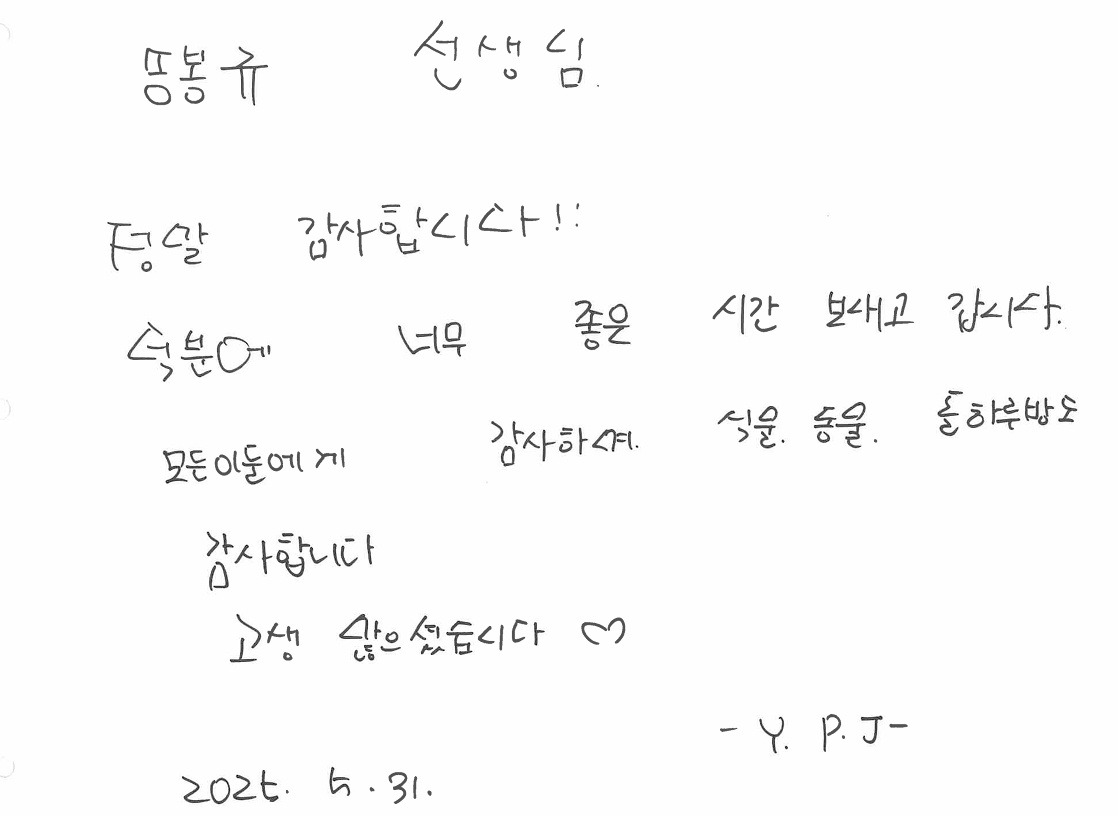 선생님.
정말 감사합니다!!
덕분에 너무 좋은 시간 보내고 갑니다.
모든이들에게 감사하며. 식물. 동물. 돌하루방도
감사합니다
고생 많으셨습니다 ♡
- Y. P. J -
2025. 5. 31.